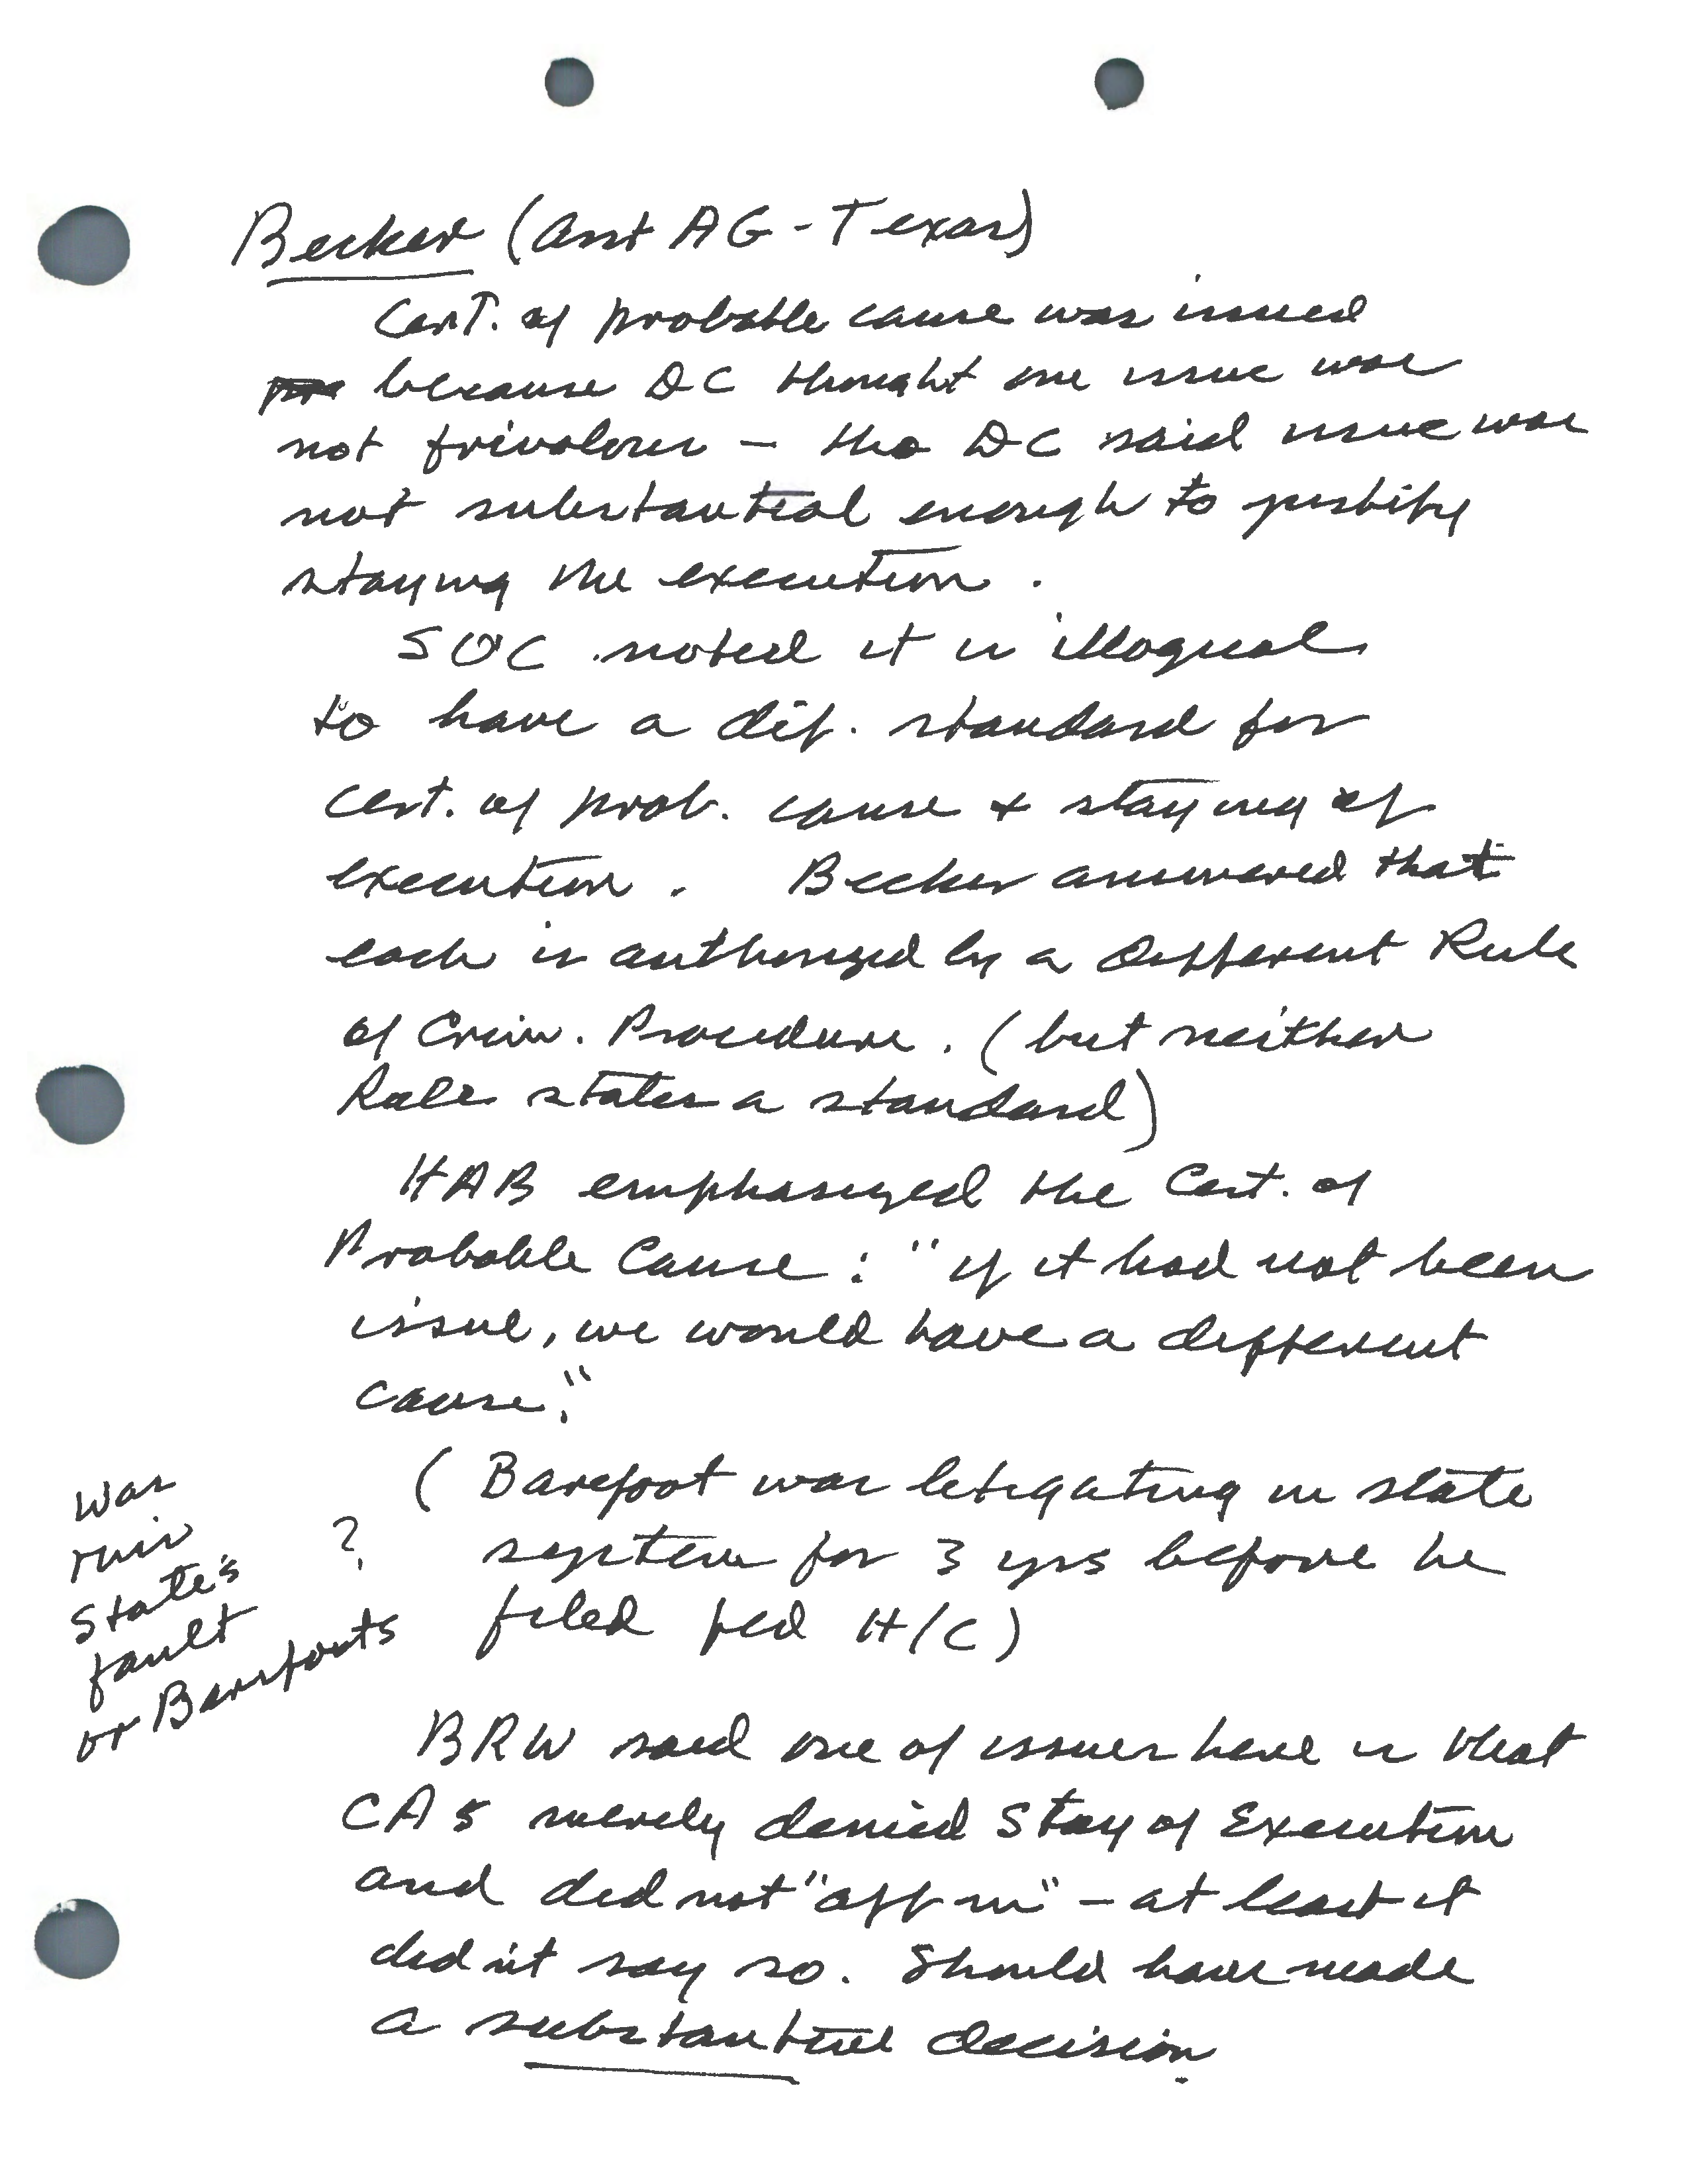 Becker (Asst AG - Texas)
Cert. of probable cause was issued
because DC thought one issue was
not frivolous - tho DC said issue was
not substantial enough to justify
staying the execution.
SOC noted it is illogical
to have a dif. standard for
cert. of prob. cause + staying of
execution. Becker answered that
each is authorized by a different Rule
of Crim. Procedure. (but neither
Rule states a standard)
HAB emphasized the Cert. of
Probable Cause: "if it had not been
issue, we would have a different
cause."
(Barefoot was litigating in state
system for 3 yrs before he
filed fed H/C)
Was
this
State's ?
fault
or Barefoots
BRW said one of issues here is that
CA5 merely denied Stay of Execution
and did not "affm" - at least it
didn't say so. Should have made
a substantive decision.